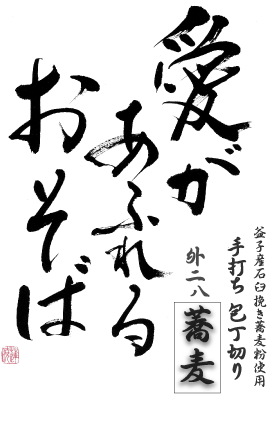 愛が
あふれる
おそば
益子産石臼挽き蕎麦粉使用
手打ち 包丁切り
外二八
蕎麦